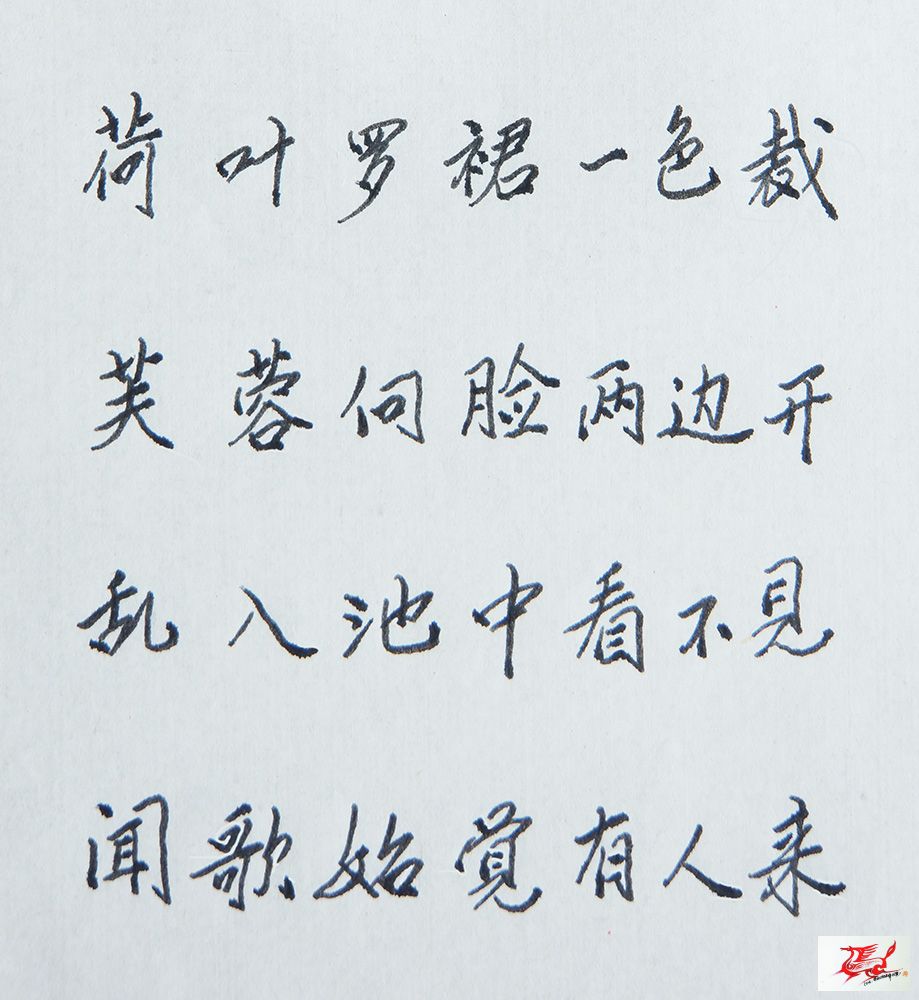 荷叶罗裙一色裁
芙蓉向脸两边开
乱入池中看不见
闻歌始觉有人来